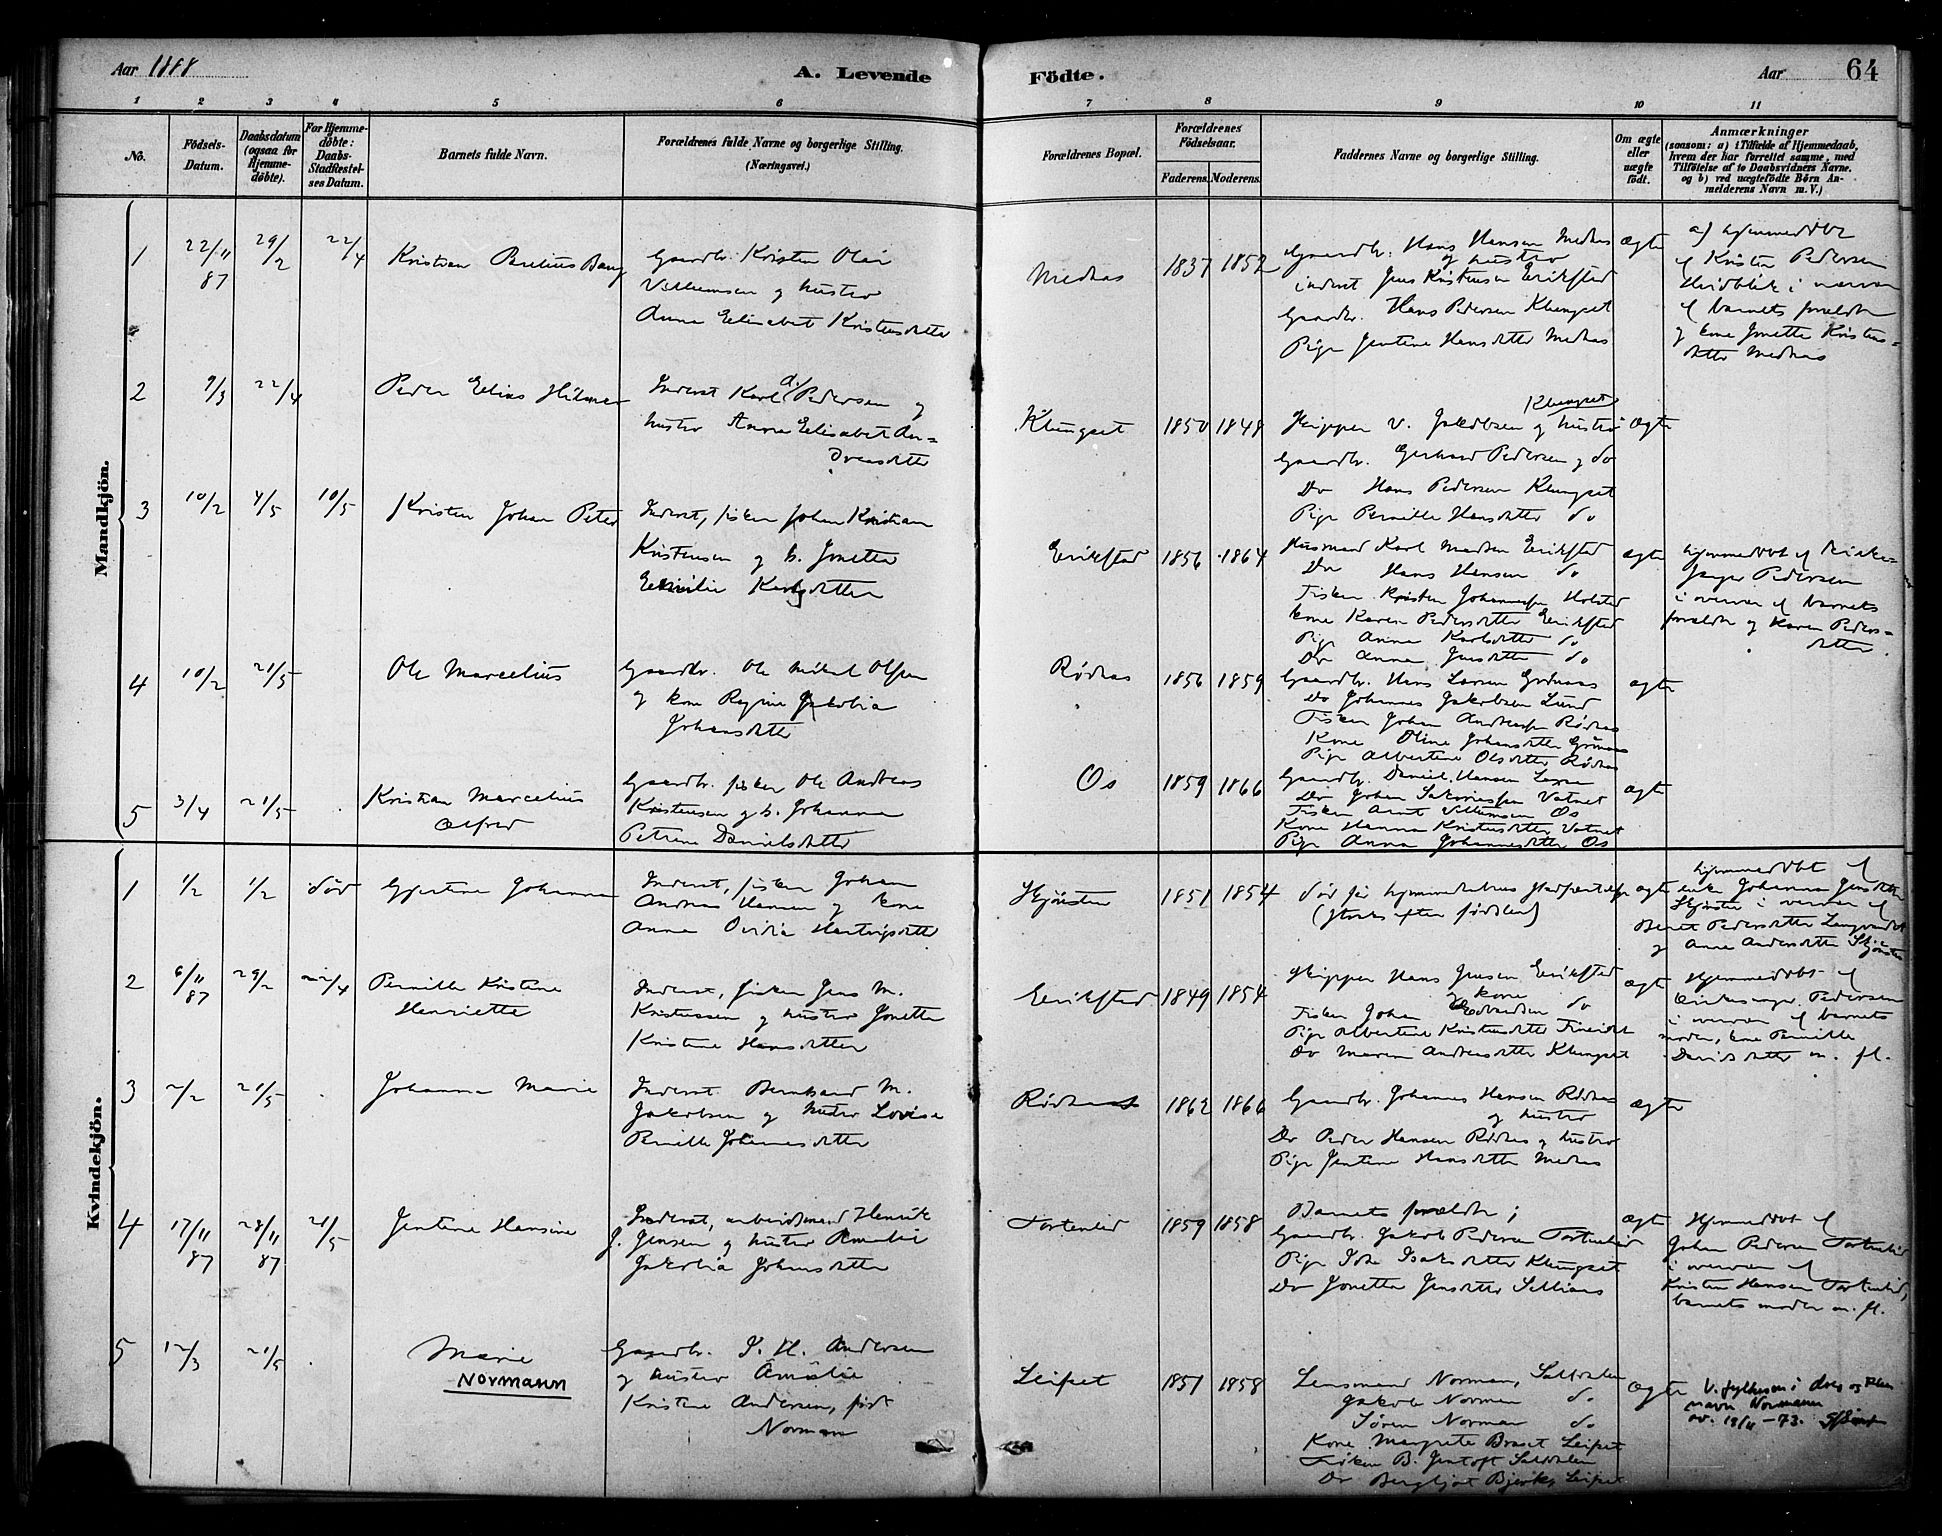 Aar 1888
A. Levende
Födte.
Aar
64
1 2 3 4 5 6 7 8 9 10 11
No.
Födsels-
Datum.
Daabsdatum
(ogsaa for
Hjemme-
döbte).
For Hjemme-
döbte:
Daabs-
Stadfæstel-
ses Datum.
Barnets fulde Navn.
Forældrenes fulde Navne og borgerlige Stilling.
(Næringsvei.)
Forældrenes Bopæl.
Forældrenes
Födselsaar.
Faderens. Moderens.
Faddernes Navne og borgerlige Stilling.
Om ægte
eller
uægte
födt.
Anmærkninger
(saasom: a) i Tilfælde af Hjemmedaab,
hvem der har forrettet samme, med
Tilföielse af to Daabsvidners Navne.
og b) ved uægtefödte Börn An-
melderens Navn m. V.)
Mandkjön.
1
22/11
87
29/2
22/4
Kristian
Gaardbr. Kristen Olai
Villumsen og hustro
Anna Elisabet Kristensdatter
Medaas
1837 1852
Gaardbr. Hans Hansen Medaas
og hustro
inderst Jens Kristensen Erikstad
Gaardbr. Hans Pedersen Klungset
Pige Jentine Hansdatter Medaas
ægte
a) hjemmedøbt
af Kristen Pedersen
i overvær
af barnets forældre
og kone Jonette Kristens-
datter Medaas
2
9/3
22/4
Peder Elias Hilmar
Inderst Karl A. Pedersen og
hustro Anna Elisabet An-
dreasdatter
Klungset
1850 1848
Klungset
Skipper V. Jakobsen og hustro
Gaardbr. Gerhard Pedersen og do
Do Hans Pedersen Klungset
Pige Pernille Hansdatter do
ægte
3
10/2
4/5
10/5
Kristen Johan Peter
Inderst, fisker Johan Kristian
Kristensen og h. Jonetta
Emilie Karlsdatter
Erikstad
1856 1864
Husmand Karl Madsen Erikstad
Do Hans Hansen do
Fisker Kristen Johannessen Holstad
kone Karen Pedersdatter Erikstad
Pige Anna Karlsdatter do
Do Anna Jensdatter do
ægte
hjemmedøbt af Kirke-
sanger Pedersen
i overvær af barnets
forældre og Karen Peders-
datter
4
10/2
21/5
Ole Marcelius
Gaardbr. Ole Mikal Olsen
og kone Regine Jakobia
Johansdatter
Rødaas
1856 1859
Gaardbr. Hans Larsen
Do Johannes Jakobsen Lund
Fisker Johan Andreassen Rødaas
Kone Oline Johansdatter
Pige Albertine Olsdatter Rødaas
ægte
5
3/4
21/5
Kristian Marcelius
Alfred
Gaardbr. fisker Ole Andreas
Kristensen og h. Johanna
Petrine Danielsdatter
Os
1859 1866
Gaardbr. Daniel Hansen
Do Johan Sakariassen Vatnet
Fisker Arnt Villumsen Os
Kone Hanna Kristensdatter Vatnet
Pige Anna Johannesdatter Os
ægte
Kvindekjön.
1
1/2
1/2
død
Gjertine Johanna
Inderst, fisker Johan
Andreas Hansen og kone
Anna Ovidia Hartvigsdatter
Skjønsten
1851 1854
død før hjemmedaabens stadfæstelse
(straks efter fødselen)
ægte
hjemmedøbt af
enke Johanna Jensdatter
Skjønsten i overvær af
Beret Pedersdatter
og Anne Andersdatter Skjønsten
2
6/11
87
29/2
22/4
Pernille Kristine
Henriette
Inderst, fisker Jens M.
Kristensen og hustro Jonetta
Kristine Hansdatter
Erikstad
1849 1854
Skipper Hans Jensen Erikstad
og kone do
Fisker Johan Edvardsen do
Pige Albertine Kristensdatter Fineidet
Do Maren Andreasdatter Klungset
ægte
Hjemmedøbt af
Kirkesanger Pedersen
i overvær af barnets
moder, kone Pernille
Davidsdatter m. fl.
3
2/2
21/5
Johanna Marie
Inderst Bernhard M.
Jakobsen og hustro Lovise
Pernille Johannesdatter
Rødaas
1862 1866
Gaardbr. Johannes Hansen Rødaas
og hustro
Do Peder Hansen Rødaas og hustro
Pige Jentine Hansdatter Medaas
ægte
4
17/11
87
28/11
87
21/5
Jentine Hansine
Inderst, arbeidsmand Henrik
J. Jensen og hustro Amalie
Jakobia Johnsdatter
Tortenlid
1859 1858
Barnets forældre;
Gaardbr. Jakob Pedersen Tortenlid
Pige Ida Isaksdatter Klungset
Do Jonetta Jensdatter
ægte
Hjemmedøbt af
Johan Pedersen Tortenlid
i overvær af
Kristen Hansen Tortenlid,
barnets moder m. fl.
5
12/3
21/5
Marie
Normann
Gaardbr. J. H. Andersen
og hustro Amalie
Kristine Andersen, født
Norman
Leifset
1851 1858
Lensmand Norman, Saltdalen
Jakob Norman do
Søren Norman do
Kone Margrete Braset Leifset
Frøken B. Jentoft Saltdalen
Do Bergljot Bjerke Leifset
ægte
V. fylkesm. i
navn Normann
av 13/11-73.